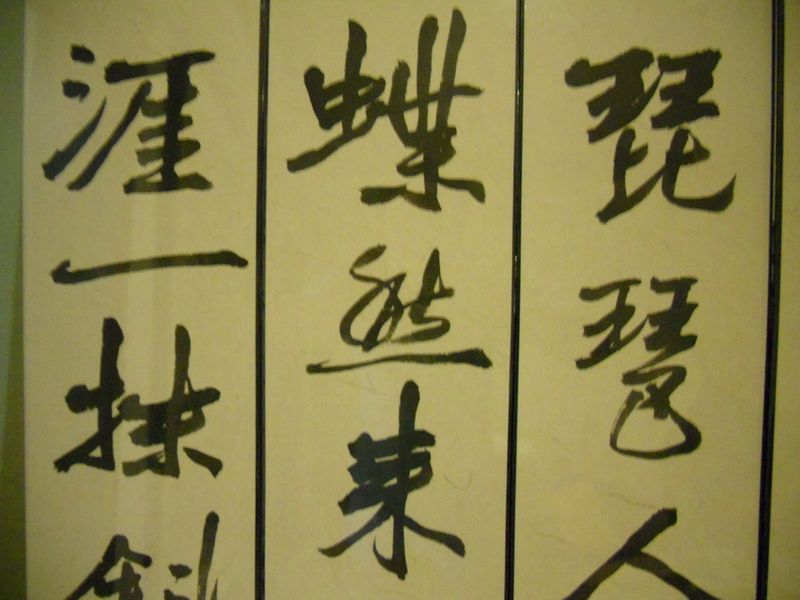 琵琶人
蝶然
涯一抹斜